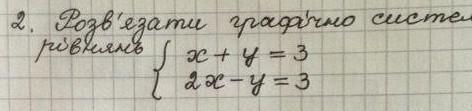 2. Розв'язати графічно систем
рівнянь { x + y = 3
2x - y = 3